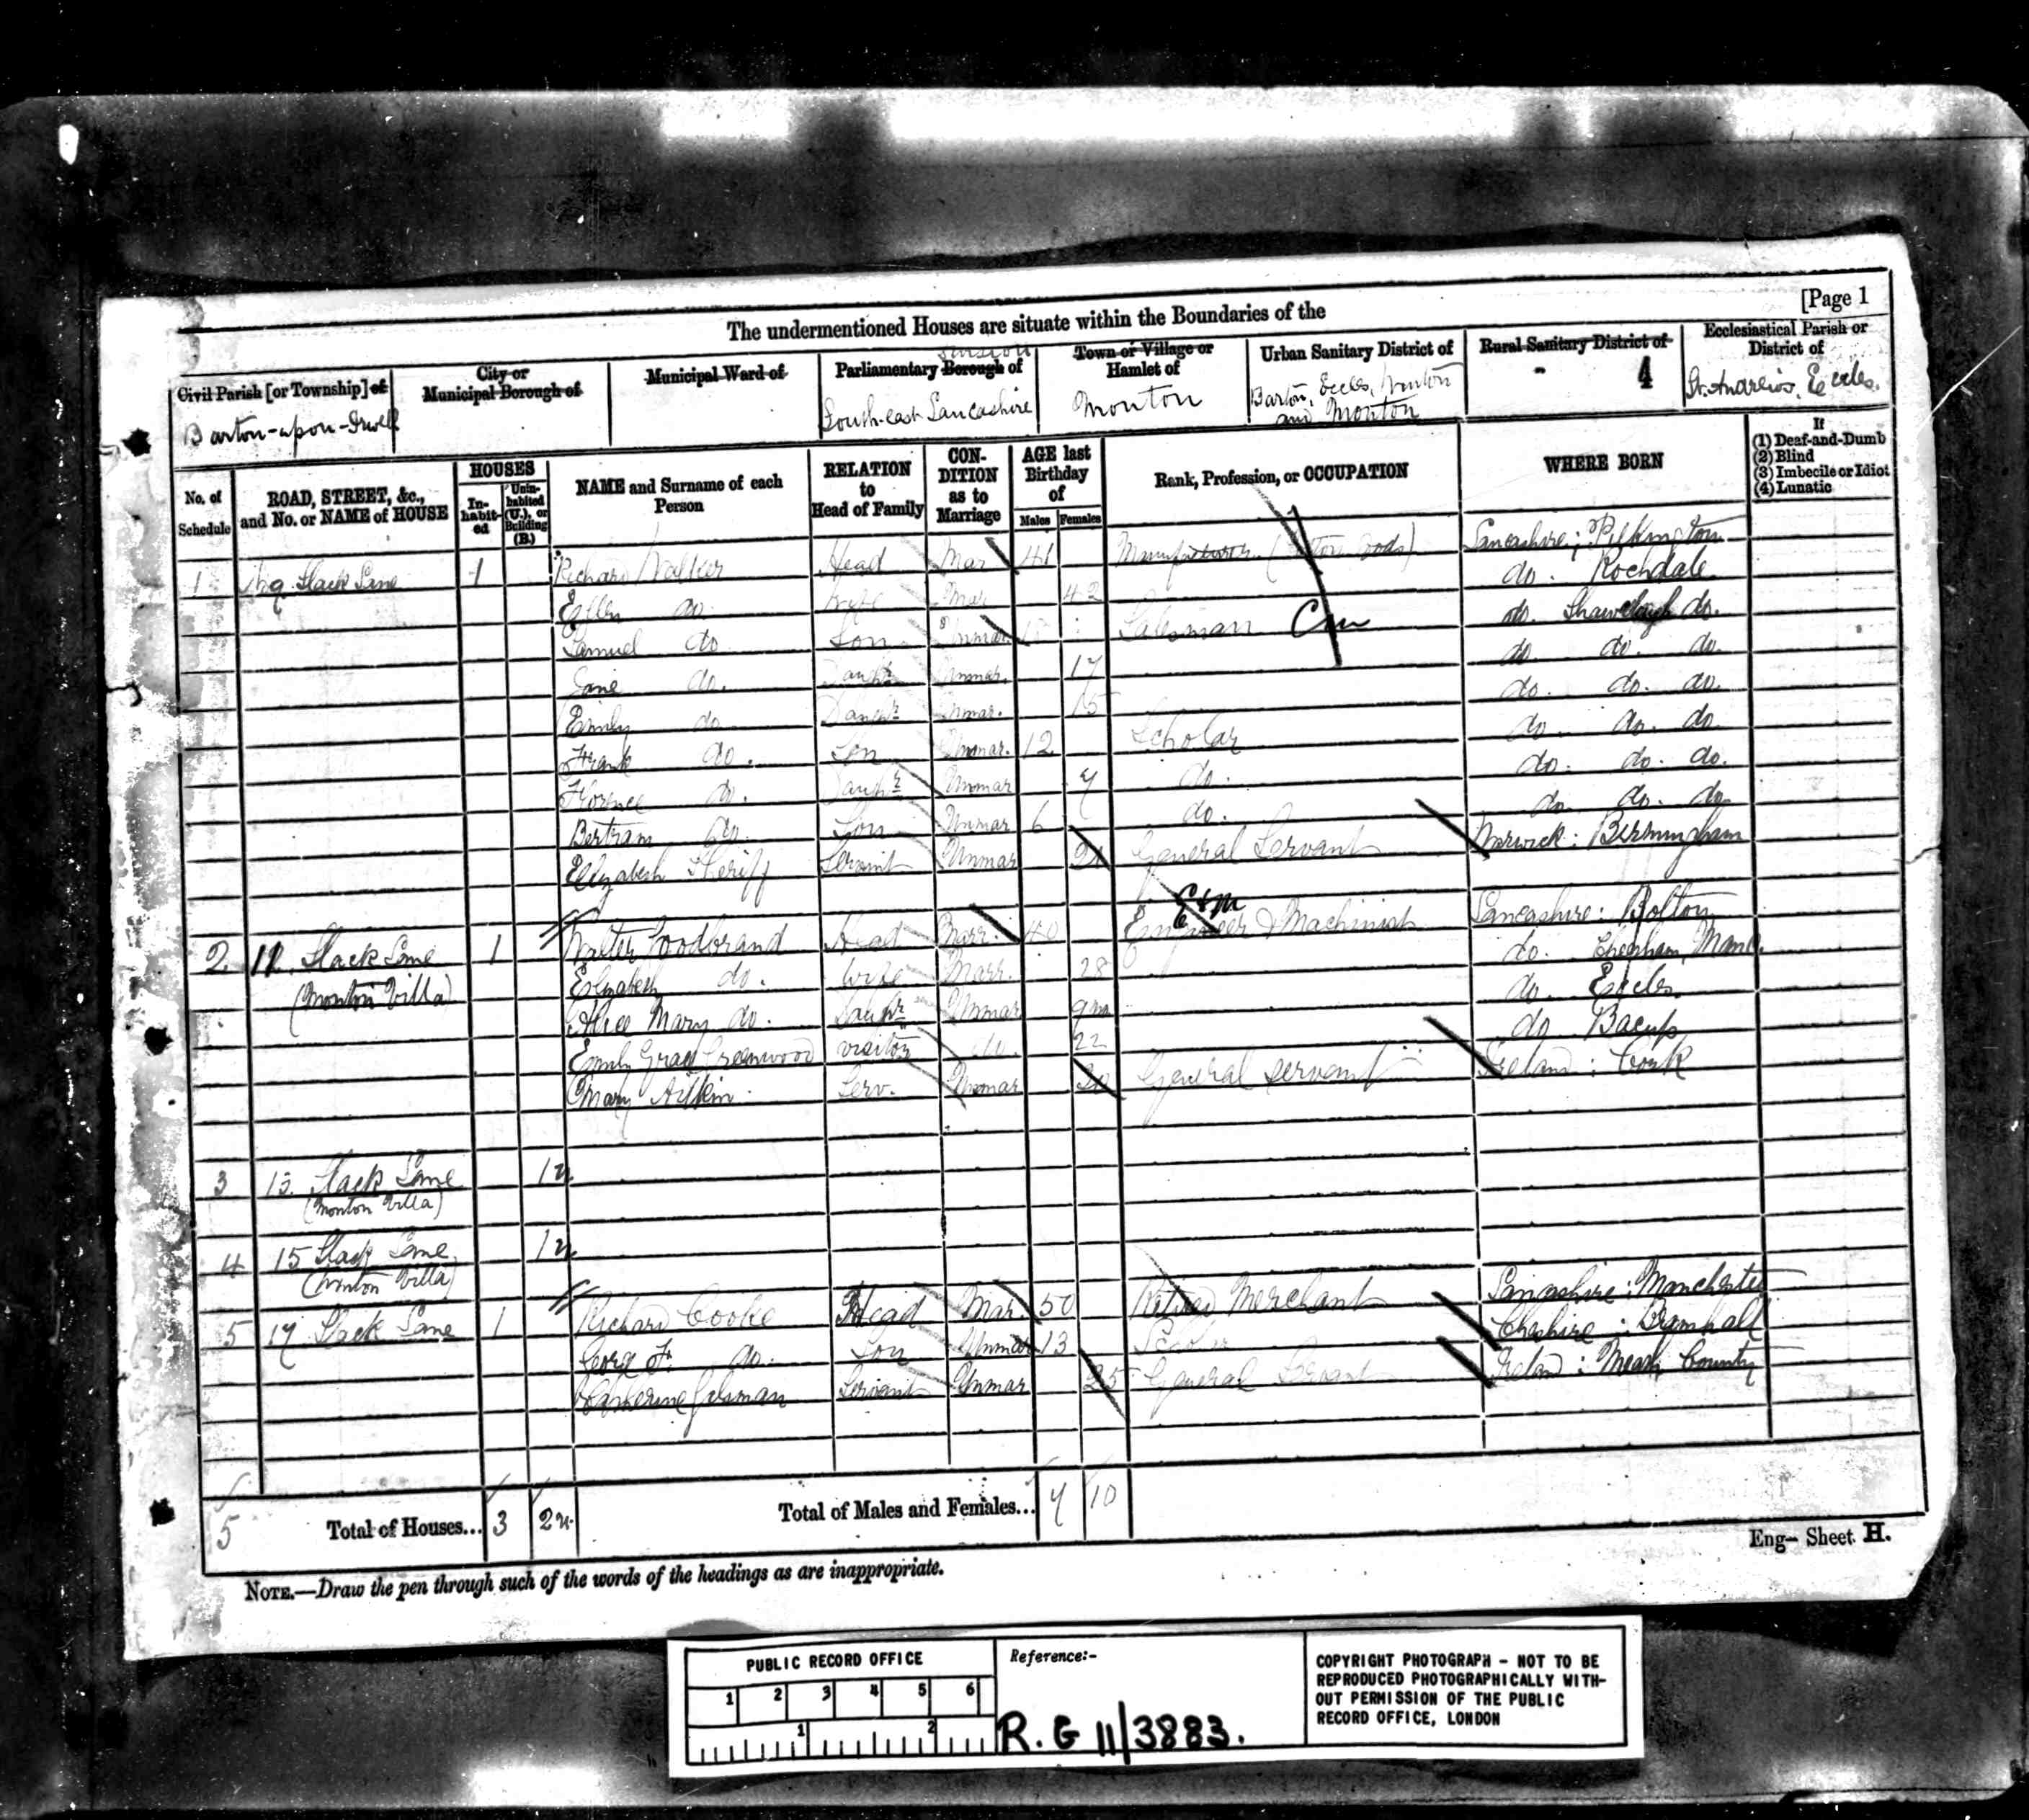 [Page 1
The undermentioned Houses are situate within the Boundaries of the
Civil Parish [or Township] of
Barton-upon-Irwell
City or Municipal Borough of
Municipal Ward of
Parliamentary Borough of
Division
South-east Lancashire
Town or Village or Hamlet of
Monton
Urban Sanitary District of
Barton, Eccles, Winton
and Monton
Rural Sanitary District of
4
Ecclesiastical Parish or District of
St. Andrew's, Eccles.
No. of Schedule
ROAD, STREET, &c., and No. or NAME of HOUSE
HOUSES
In-habit-ed
Unin-habited (U.), or Building (B.)
NAME and Surname of each Person
RELATION to Head of Family
CON-DITION as to Marriage
AGE last Birthday of
Males Females
Rank, Profession, or OCCUPATION
WHERE BORN
If
(1) Deaf-and-Dumb
(2) Blind
(3) Imbecile or Idiot
(4) Lunatic
1 Slack Lane 1 Richard Walker Head Mar 41 Manufacturer (Cotton Goods) Lancashire; Pilkington
Ellen do. Wife Mar 42 do. Rochdale
Samuel do Son Unmar. Salesman Cm do. do.
Jane do. Daugr Unmar. 17 do. do. do.
Emily do Daugr Unmar. 15 do. do. do.
Frank do. Son Unmar. 12 Scholar do. do. do
Florence do. Daugr Unmar 9 do. do. do. do.
Bertram do. Son Unmar 6 do. do. do. do
Elizabeth Sheriff Servant Unmar General Servant Warwick: Birmingham
2 11. Slack Lane 1 Walter Goodbrand Head Marr. 40 E&M Engineer & Machinist Lancashire: Bolton
(Monton Villa) Elizabeth do. Wife Marr. 28 do. Manc.
Alice Mary do. Daugr Unmar 9m do. Eccles
Emily Grace Greenwood Visitor do. 22 do Bacup
Mary Aitkin Serv. Unmar 20 General Servant Ireland: Cork
3 13. Slack Lane 1u
(Monton Villa)
4 15 Slack Lane 1u
(Monton Villa)
5 17 Slack Lane 1 Richard Cooke Head Mar. 50 Retired Merchant Lancashire: Manchester
George F. do. Son Unmar 13 Scholar Cheshire: Bramhall
Catherine Servant Unmar 25 General Servant Ireland: Meath County
5 Total of Houses... 3 2u. Total of Males and Females... 7 10
Eng— Sheet H.
NOTE.—Draw the pen through such of the words of the headings as are inappropriate.
PUBLIC RECORD OFFICE
1 2 3 4 5 6
1 2
Reference:-
R.G 11/3883.
COPYRIGHT PHOTOGRAPH - NOT TO BE
REPRODUCED PHOTOGRAPHICALLY WITH-
OUT PERMISSION OF THE PUBLIC
RECORD OFFICE, LONDON